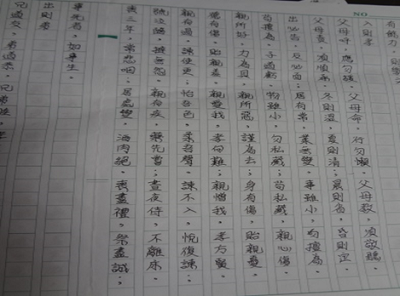 NO
有餘力．則學
入則孝
父母呼．應勿緩．父母命．行勿懶．父母教．須敬聽．
父母責．須順承．冬則溫．夏則凊．晨則省．昏則定．
出必告．反必面．居有常．業無變．事雖小．勿擅為．
苟擅為．子道虧．物雖小．勿私藏．苟私藏．親心傷．
親所好．力為具．親所惡．謹為去．身有傷．貽親憂．
德有傷．貽親羞．親愛我．孝何難．親憎我．孝方賢．
親有過．諫使更．怡吾色．柔吾聲．諫不入．悅復諫．
號泣隨．撻無怨．親有疾．藥先嘗．晝夜侍．不離床．
喪三年．常悲咽．居處變．酒肉絕．喪盡禮．祭盡誠．
事死者．如事生．
出則弟
兄道友．弟道恭．兄弟睦